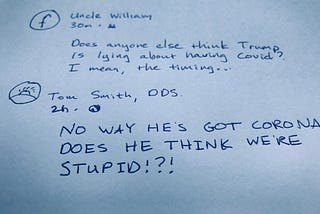 f Uncle William
30m •
Does anyone else think Trump
is lying about having Covid?
I mean, the timing...
Tom Smith, DDS.
2h •
NO WAY HE'S GOT CORONA
DOES HE THINK WE'RE
STUPID!?!